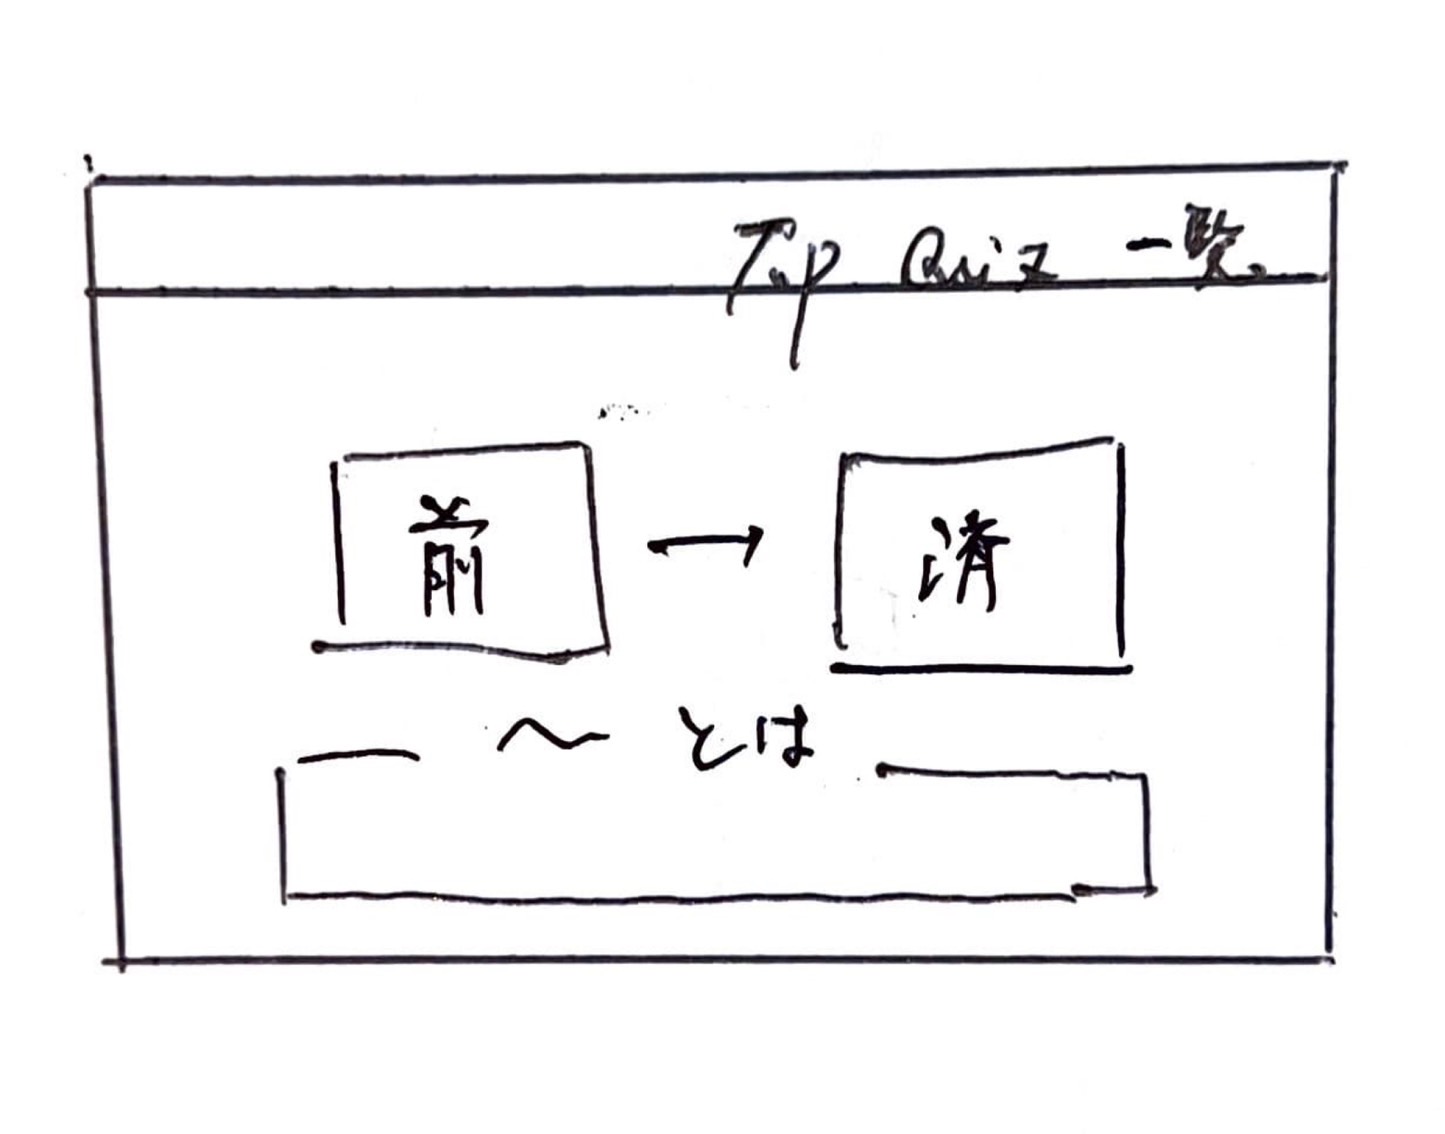 Top Quiz 一覧
前 → 済
〜 とは